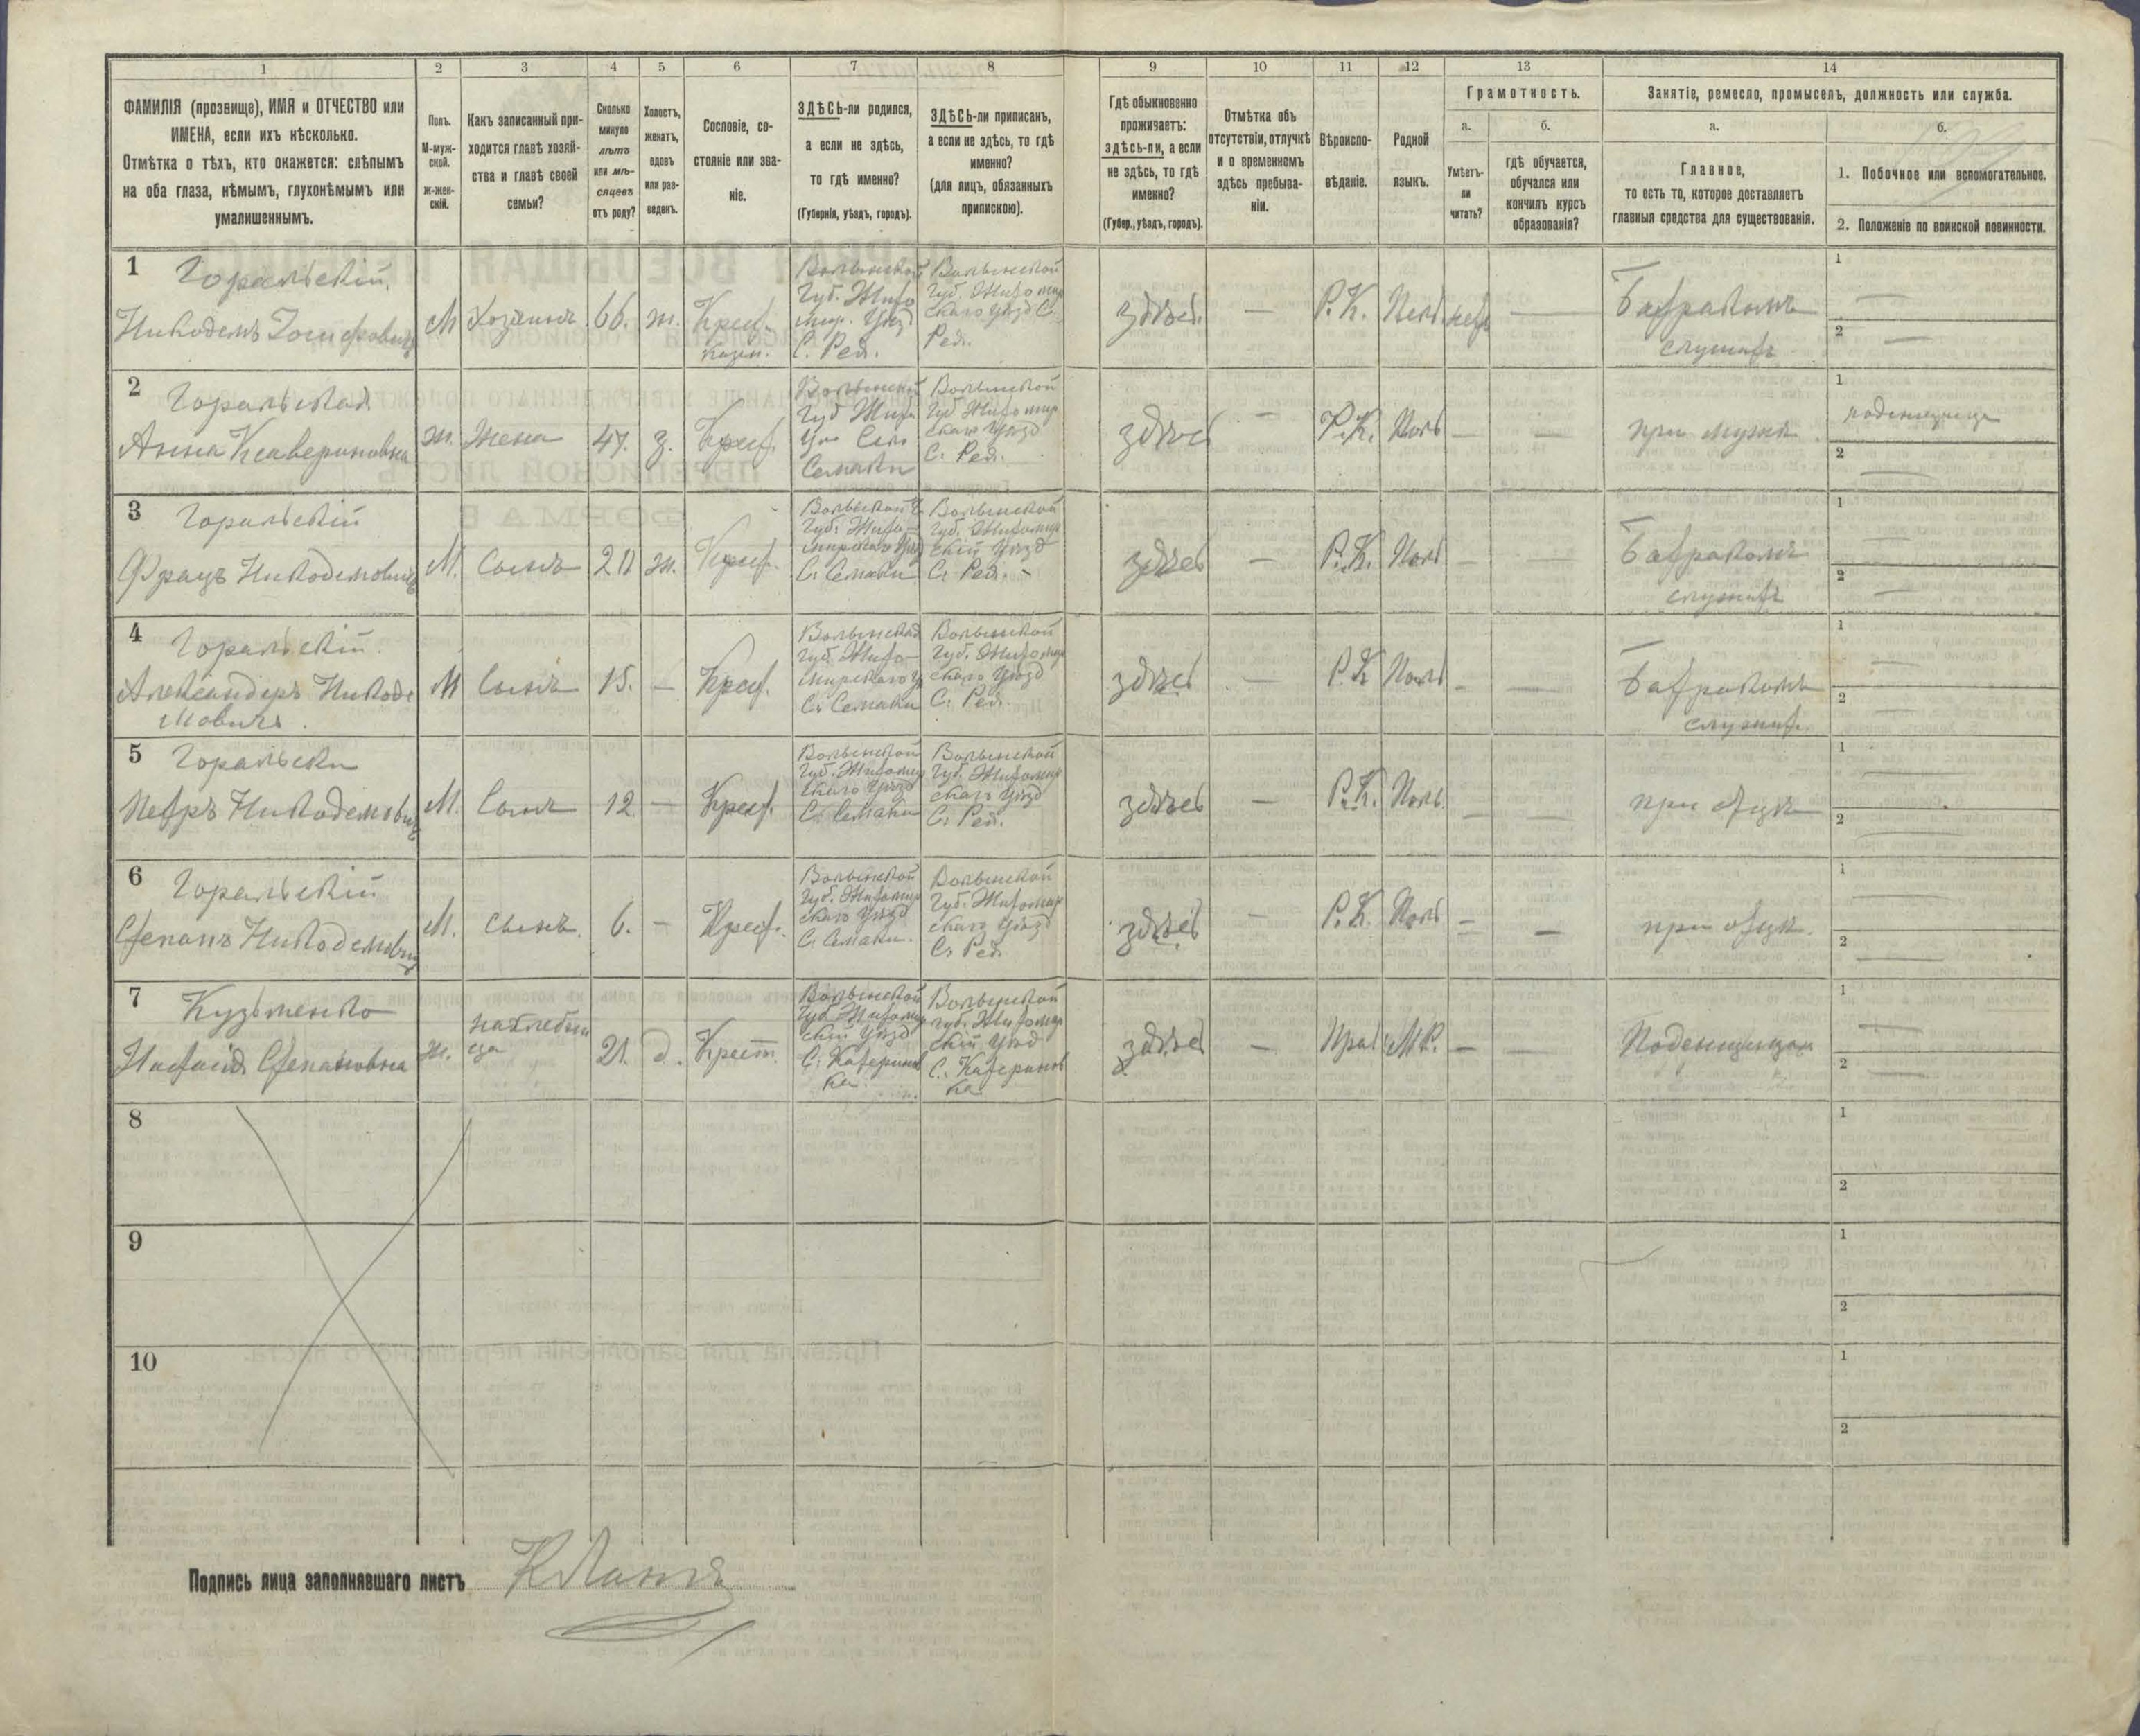 1 2 3 4 5 6 7 8 9 10 11 12 13 14
ФАМИЛІЯ (прозвище), ИМЯ и ОТЧЕСТВО или
ИМЕНА, если ихъ нѣсколько.
Отмѣтка о тѣхъ, кто окажется: слѣпымъ
на оба глаза, нѣмымъ, глухонѣмымъ или
умалишеннымъ.
Полъ.
М-муж-
ской.
Ж-жен-
скій.
Какъ записанный при-
ходится главѣ хозяй-
ства и главѣ своей
семьи?
Сколько
минуло
лѣтъ
или мѣ-
сяцевъ
отъ роду?
Холостъ,
женатъ,
вдовъ
или раз-
веденъ.
Сословіе, со-
стояніе или зва-
ніе.
ЗДѢСЬ-ли родился,
а если не здѣсь,
то гдѣ именно?
(Губернія, уѣздъ, городъ).
ЗДѢСЬ-ли приписанъ,
а если не здѣсь, то гдѣ
именно?
(для лицъ, обязанныхъ
припискою).
Гдѣ обыкновенно
проживаетъ:
здѣсь-ли, а если
не здѣсь, то гдѣ
именно?
(Губер., уѣздъ, городъ).
Отмѣтка объ
отсутствіи, отлучкѣ
и о временномъ
здѣсь пребыва-
ніи.
Вѣроиспо-
вѣданіе.
Родной
языкъ.
Грамотность.
а.
Умѣетъ-
ли
читать?
б.
гдѣ обучается,
обучался или
кончилъ курсъ
образованія?
Занятіе, ремесло, промыселъ, должность или служба.
а.
Главное,
то есть то, которое доставляетъ
главныя средства для существованія.
б.
1. Побочное или вспомогательное.
2. Положеніе по воинской повинности.
1 Горальскій
Никодемъ Іосифовичъ М Хозяинъ 66. ж. Крест.
Волынской
Губ. Жито
мир. Уѣзд
С. Рея.
Волынской
Губ. Житомир
скаго Уѣзд С.
Рея.
здѣсь — Р.К. Поль нетъ —
Батракомъ
служитъ
1 —
2 —
2 Горальская
Анна Ксавериновна ж. Жена 47. з. Крест.
Волынской
Губ Жито
Село
Семаки
Волынской
Губ Житомир
скаго Уѣзд
С. Рея.
здѣсь — Р.К. Поль — —
при мужѣ
1 поденщица
2 —
3 Горальскій
Францъ Никодемовичъ М. Сынъ ж. Крест.
Волынской
Губ. Жито-
мирскаго Уѣзд
С. Семаки
Волынской
Губ. Житомир
скій Уѣзд
С. Рея. -
здѣсь — Р.К. Поль — —
Батракомъ
служитъ
1 —
2 —
4 Горальскій
Александеръ Никоде
мовичъ. М Сынъ 15. — Крест.
Волынская
Губ. Жито-
мирскаго У
С. Семаки
Волынской
Губ. Житомир
скаго Уѣзд
С. Рея.
здѣсь — Р.К Поль — —
Батракомъ
служит.
1 —
2 —
5 Горальски
Петръ Никодемовичъ М. Сынъ 12 — Крест.
Волынской
Губ. Житомир
скаго Уѣзд
С. Семаки
Волынской
Губ. Житомир
скаго Уѣзд
С. Рея.
здѣсь — Р.К. Поль. — —
при отцѣ
1 —
2 —
6 Горальскій
Степанъ Никодемович М. сынъ. 6. — Крест.
Волынской
Губ. Житомир
скаго Уѣзд
С. Семаки.
Волынской
Губ. Житомир
скаго Уѣзд
С. Рея.
здѣсь — Р.К. Поль — —
при отцѣ.
1 —
2 —
7 Кузьменко
Степановна ж. нахлебни
ца 21. д. Крест.
Волынской
Губ. Житомир
скій Уѣзд
С. Катеринов
ка.
Волынской
губ. Житомир
скій Уѣзд
С. Катеринов
ка
здѣсь — Прав М.Р. — —
Поденщицою
1 —
2 —
8 1
2
9 1
2
10 1
2
Подпись лица заполнявшаго листъ